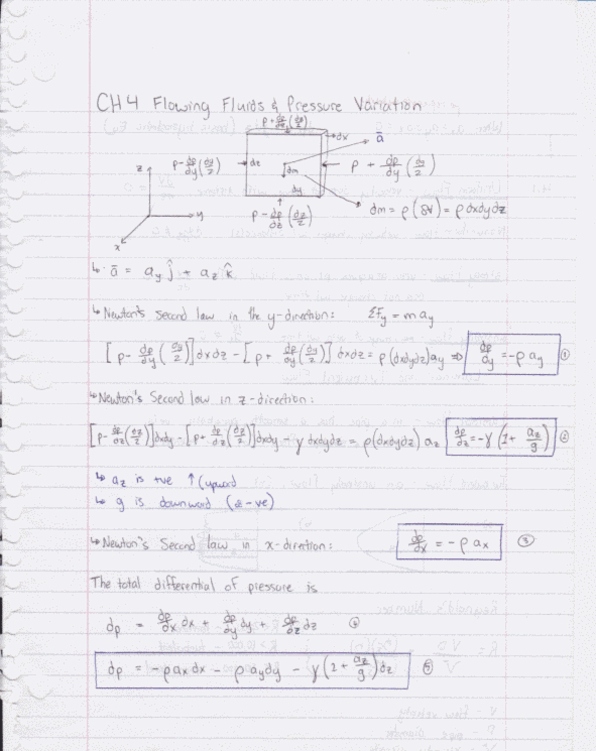 CH4 Flowing Fluids & Pressure Variation
p + dp/dz (dz/2)
dx
ā
p - dp/dy (dy/2)
dz
dm
p + dp/dy (dy/2)
z
dy
y
p - dp/dz (dz/2)
dm = ρ(δV) = ρdxdydz
x
↳ ā = ay ĵ + az k̂
↳ Newton's second law in the y-direction: ΣFy = m ay
[p - dp/dy (dy/2)] dxdz - [p + dp/dy (dy/2)] dxdz = ρ(dxdydz) ay ⇒ dp/dy = -ρ ay ①
↳ Newton's Second law in z-direction:
[p - dp/dz (dz/2)] dxdy - [p + dp/dz (dz/2)] dxdy - γ dxdydz = ρ(dxdydz) az dp/dz = -γ (1 + az/g) ②
↳ az is +ve ↑ (upward
↳ g is downward (-ve)
↳ Newton's Second law in x-direction: dp/dx = -ρ ax ③
The total differential of pressure is
dp = dp/dx dx + dp/dy dy + dp/dz dz ④
dp = -ρ ax dx - ρ ay dy - γ (1 + az/g) dz ⑤